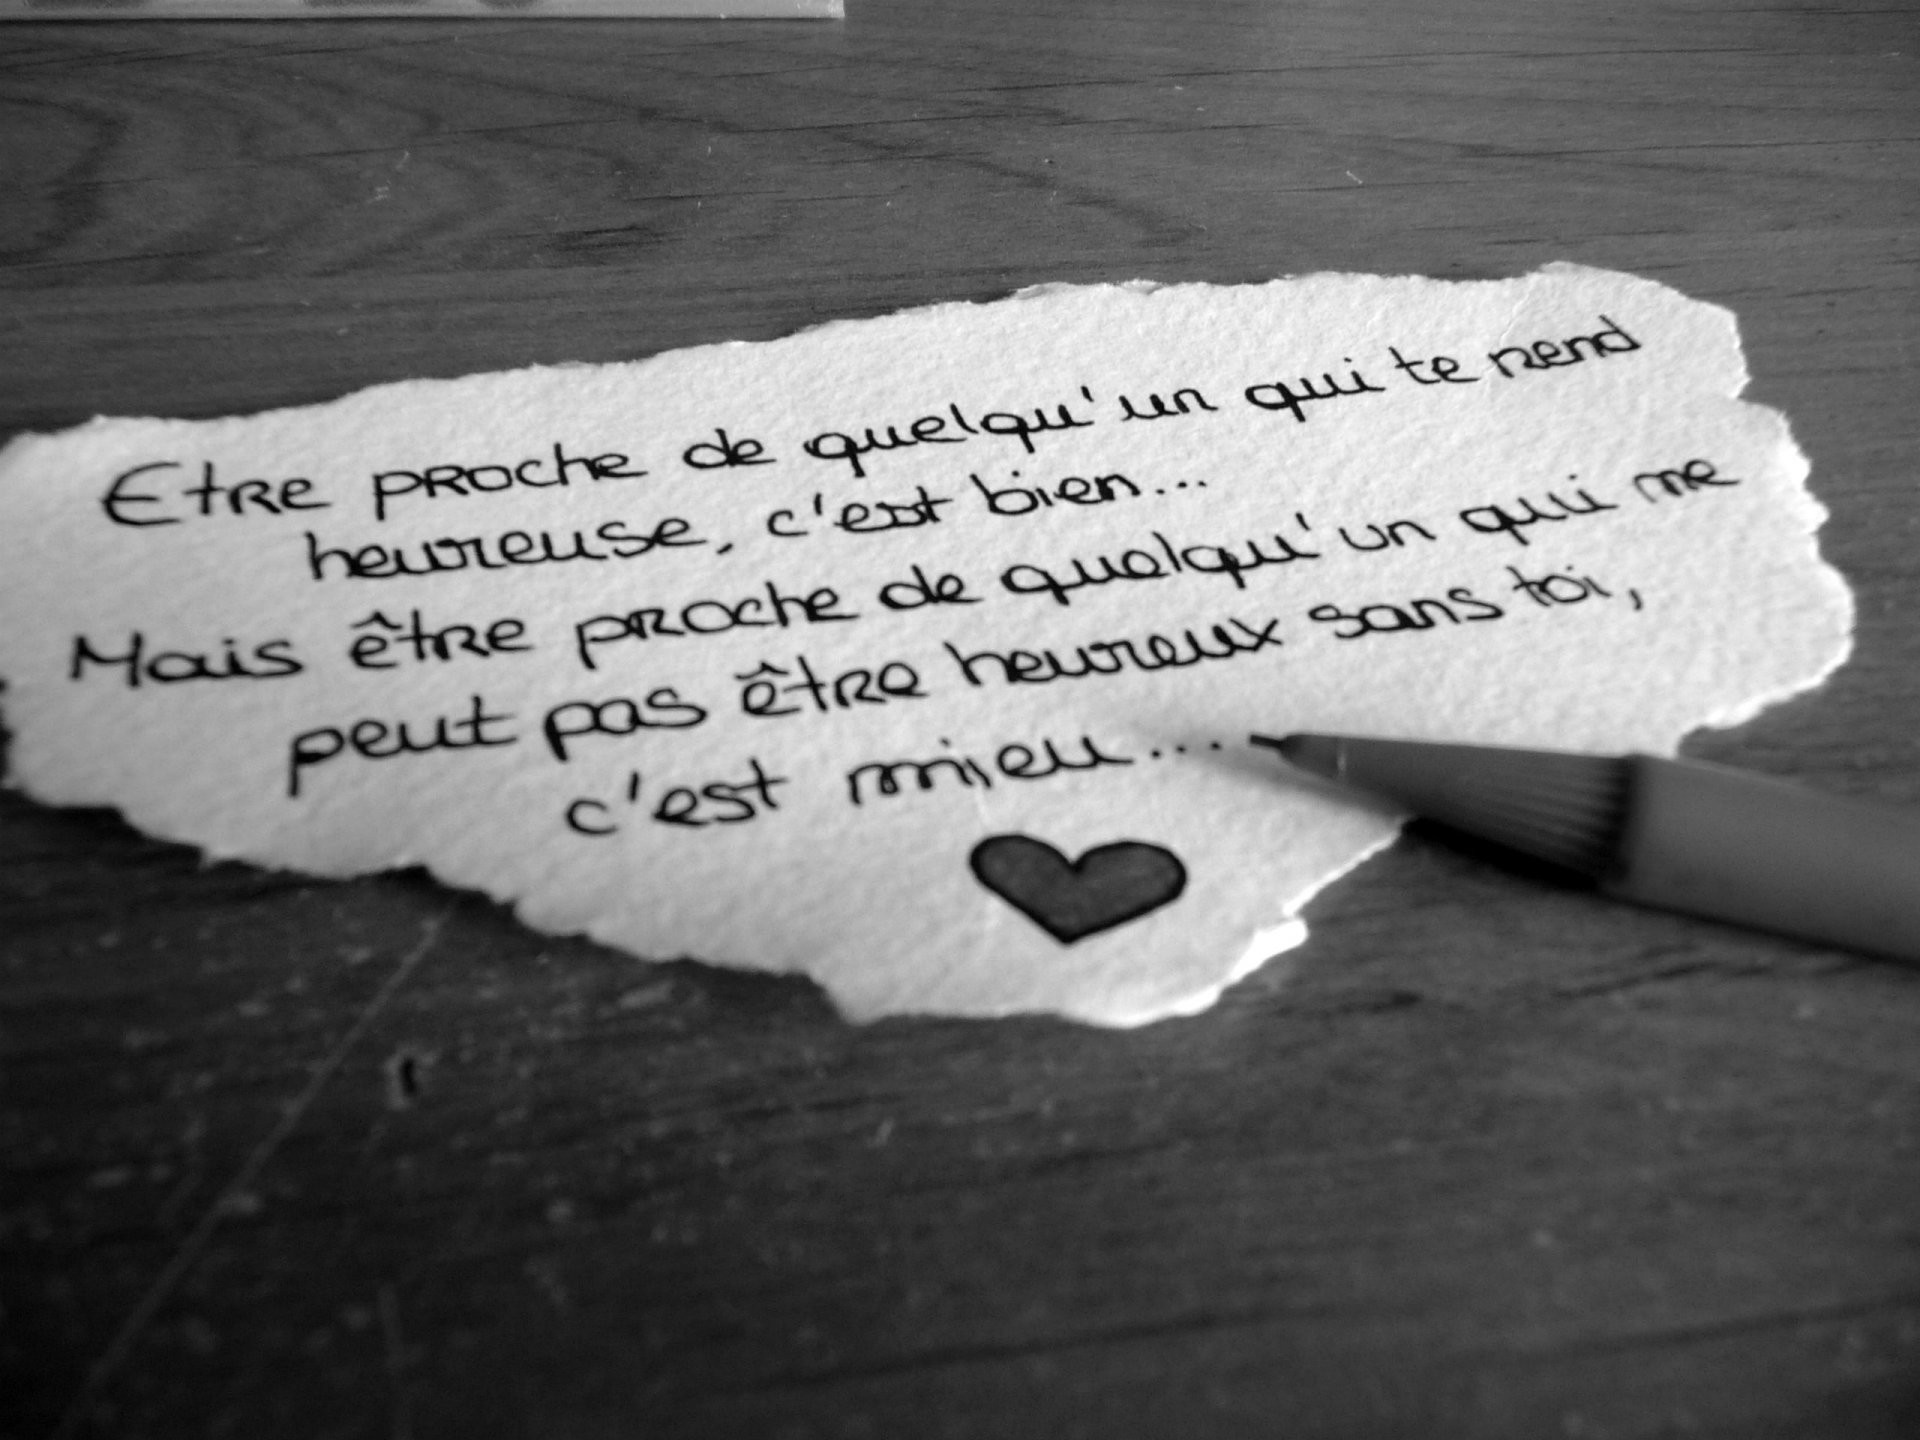 Etre proche de quelqu'un qui te rend
heureuse, c'est bien...
Mais être proche de quelqu'un qui me
peut pas être heureux sans toi,
c'est mieu...